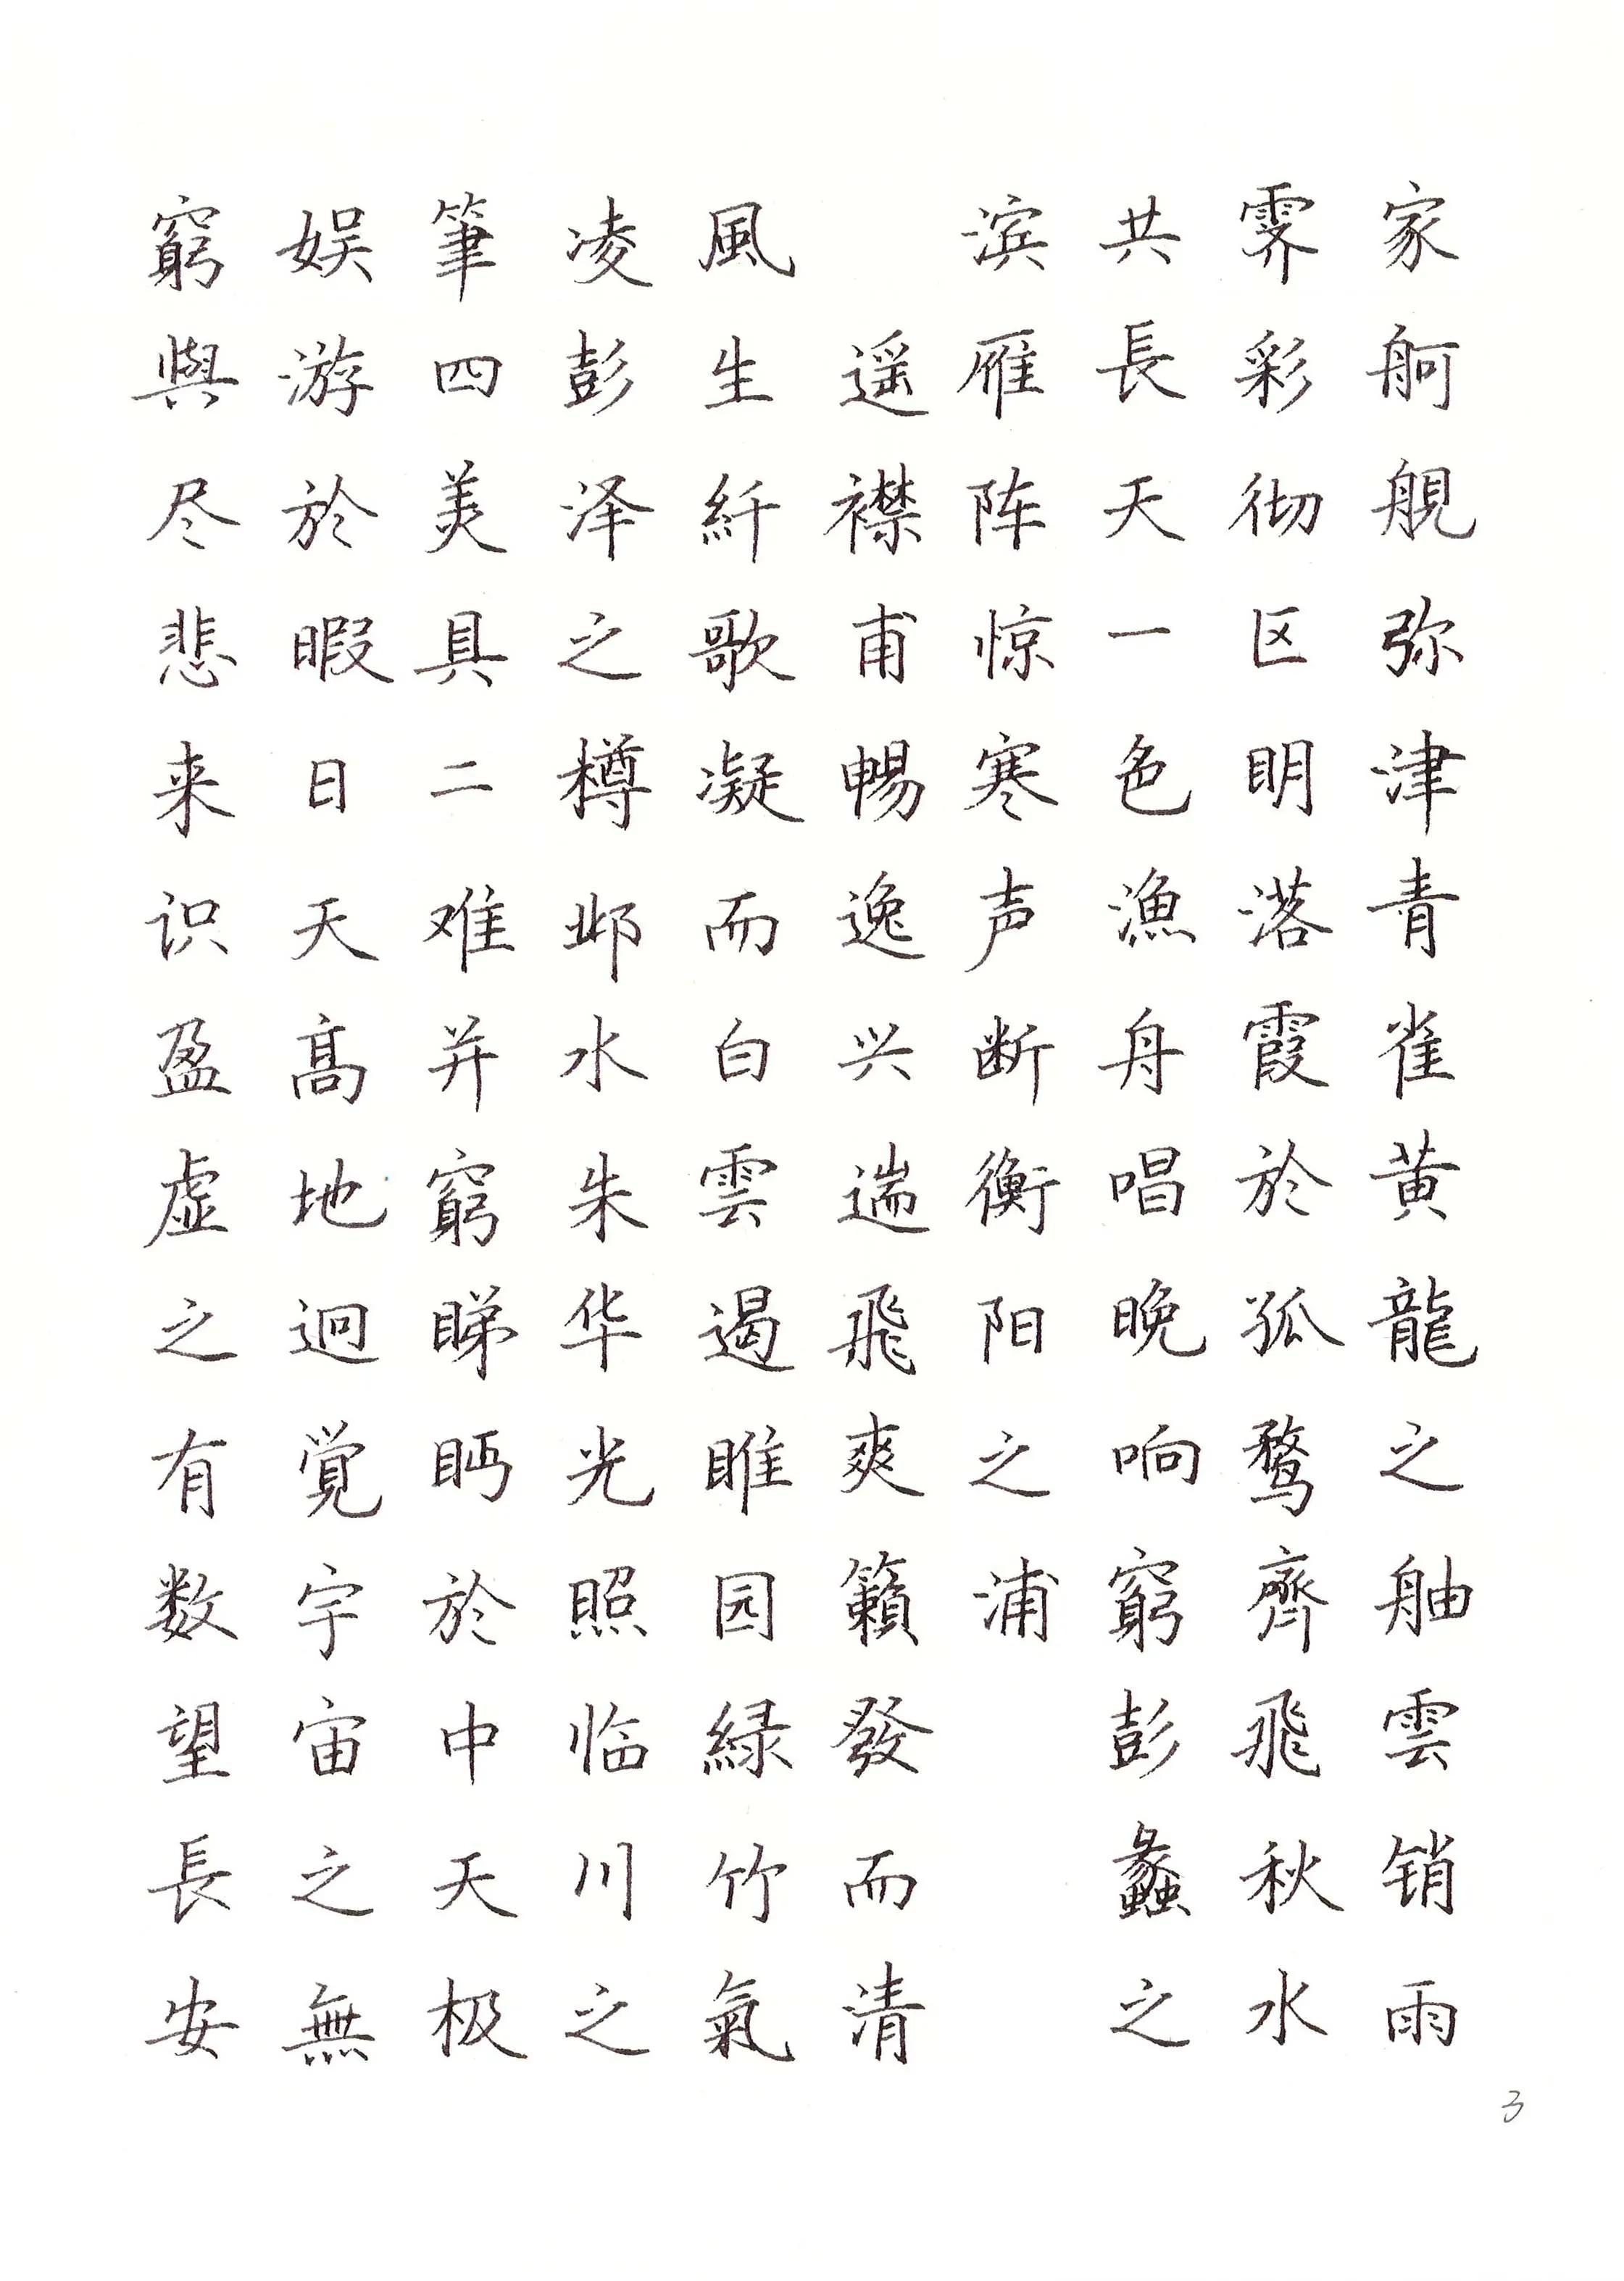 家舸舰弥津青雀黄龍之舳雲销雨
霁彩彻区明落霞於孤鹜齊飛秋水
共長天一色漁舟唱晚响窮彭蠡之
滨雁阵惊寒声断衡阳之浦
遥襟甫暢逸兴遄飛爽籟發而清
風生纤歌凝而白雲遏睢园緑竹氣
凌彭泽之樽邺水朱华光照临川之
筆四美具二难并窮睇眄於中天极
娱游於暇日天高地迥覚宇宙之無
窮與尽悲来识盈虚之有数望長安
3